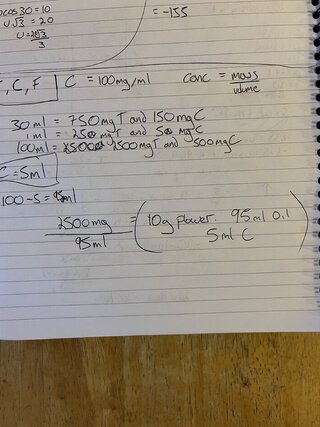 cos30 = 10
= -155
u√3 = 20
u = 2√3
3
, C, F C = 100mg/ml conc = mass
volume
30ml = 750mg T and 150mg C
1ml = 25 mg T and 5 mg C
100ml = 2500mg T and 500mg C
C = 5ml
100 - 5 = 95ml
2500mg = 10g flower. 95ml oil
95ml 5ml C